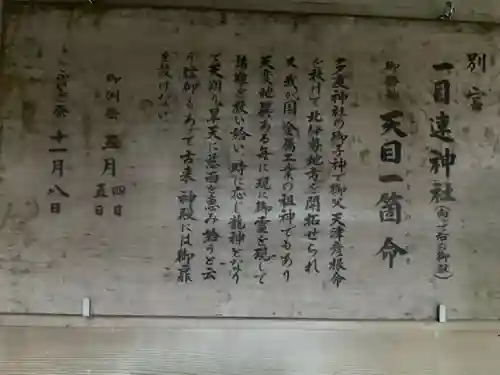 別宮
一目連神社（向って右の御殿）
御祭神 天目一箇命
多度神社の御子神で御父天津彦根命
を扶けて北伊勢地方を開拓せられ
又我が国金属工業の祖神でもあり
天変地異ある毎に現に御霊を現して
諸難を救い給い時に応じ龍神となり
て天翔り旱天に慈雨を恵み給うと云
う信仰もあって古来神殿には御扉
を設けない
御例祭 五月 四日 五日
ふいご祭 十一月八日